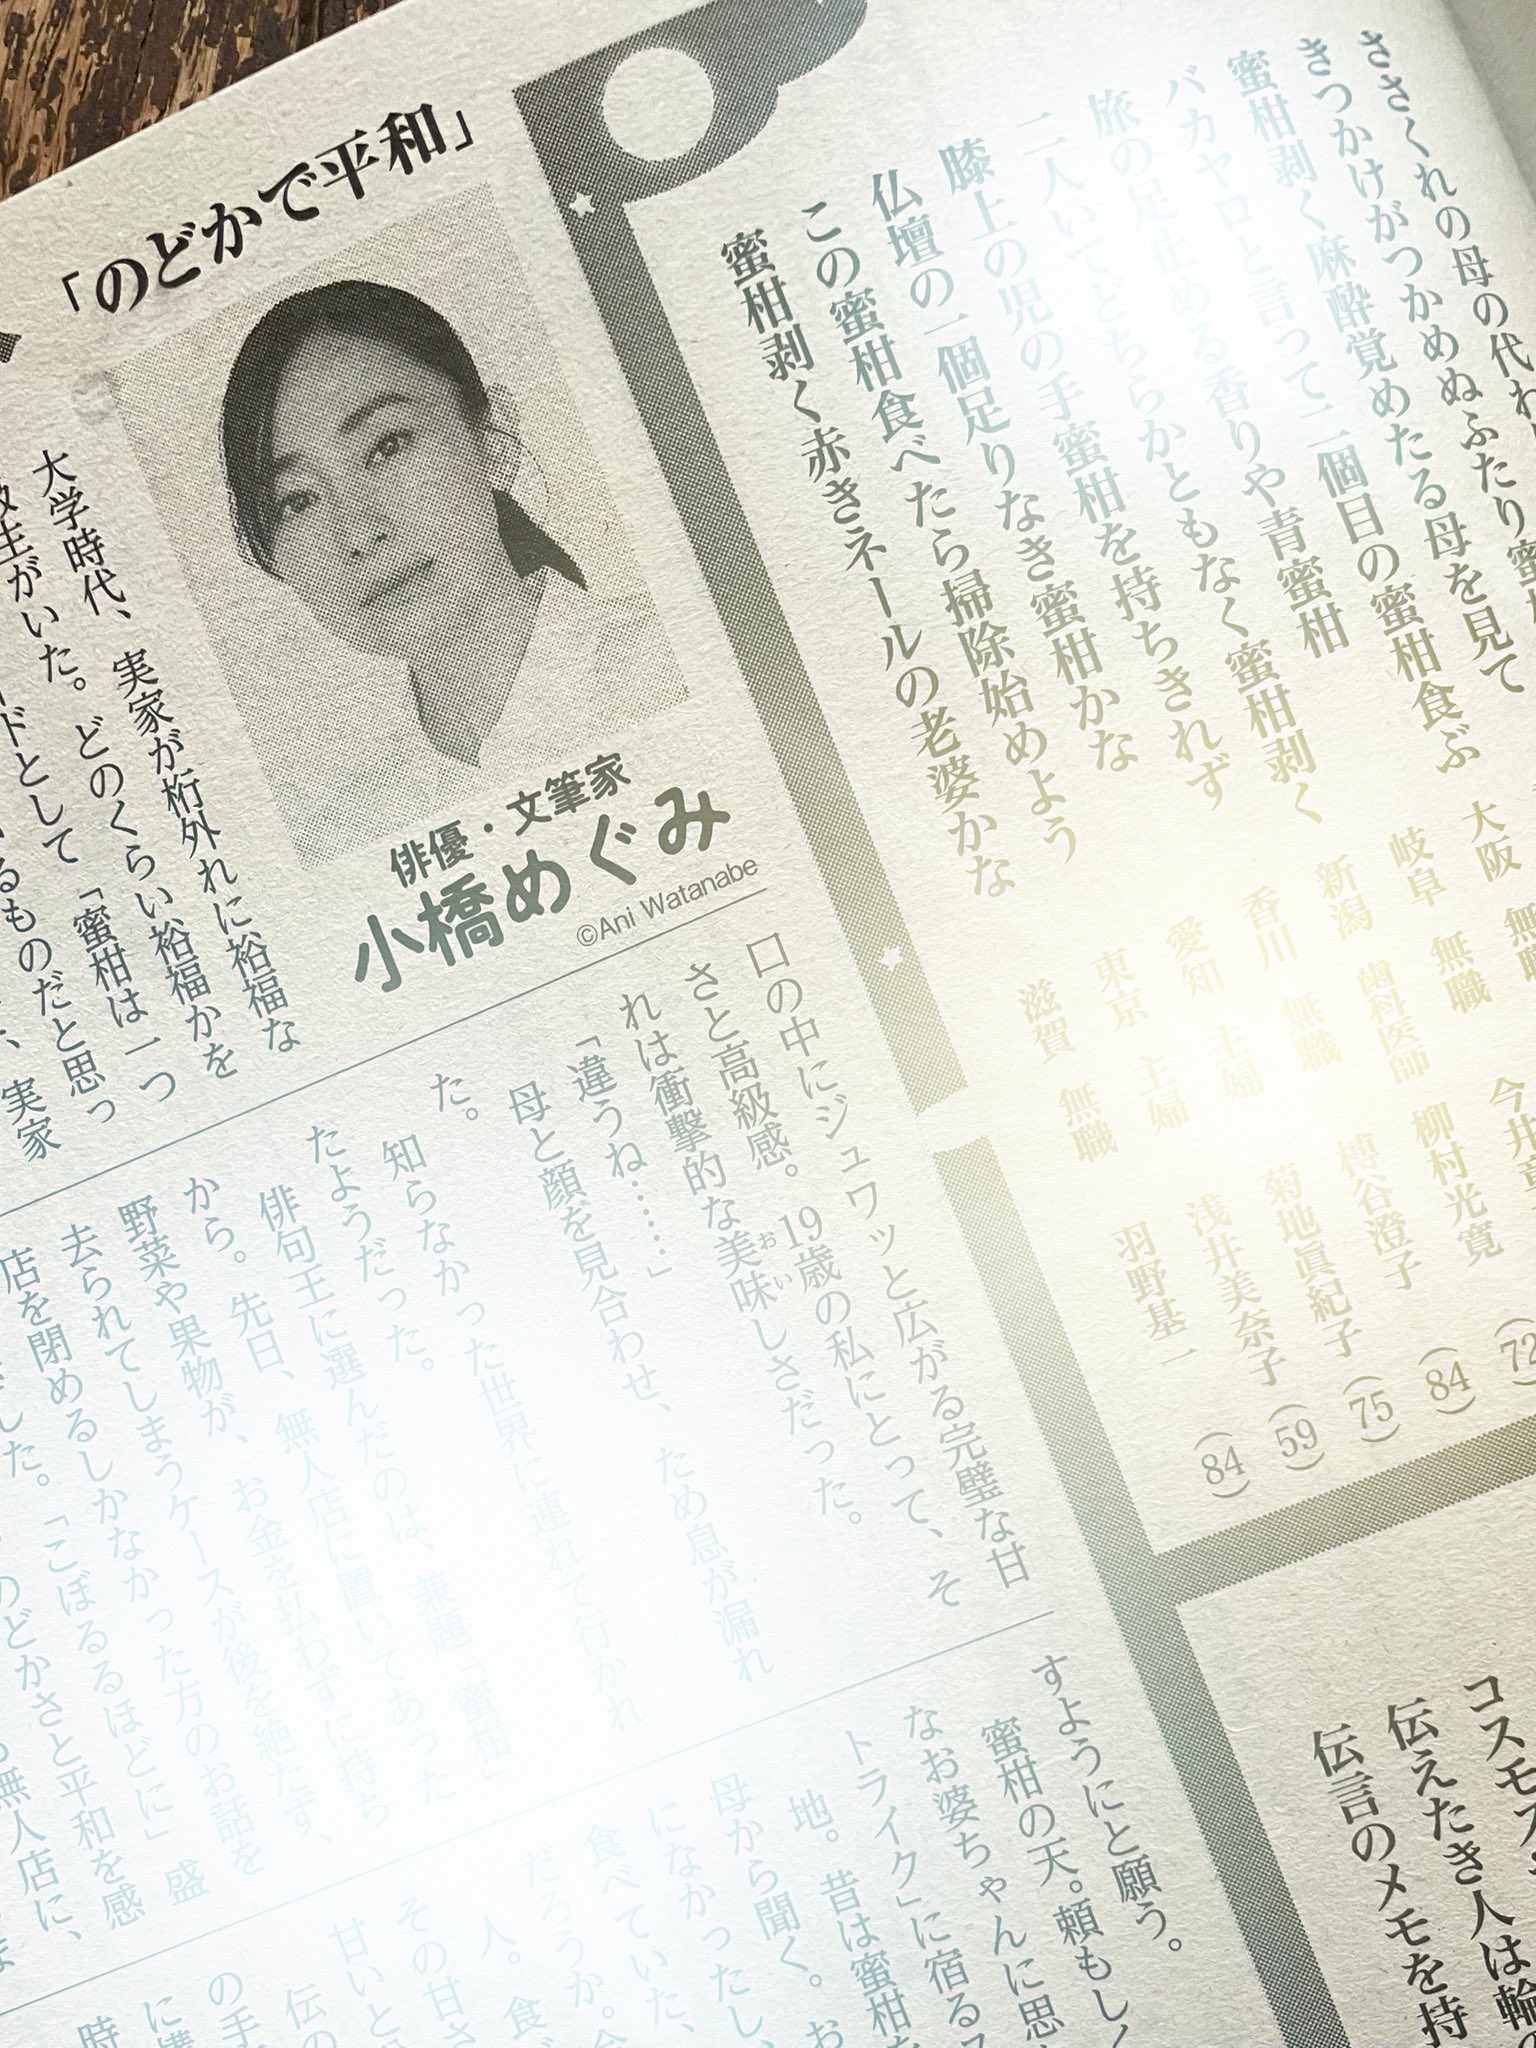 ささくれの母の代わ
きつかけがつかめぬふたり蜜
蜜柑剥く麻酔覚めたる母を見て
バカヤロと言って二個目の蜜柑食ぶ
旅の足止める香りや青蜜柑
二人いてどちらかともなく蜜柑剥く
膝上の児の手蜜柑を持ちきれず
仏壇の一個足りなき蜜柑かな
この蜜柑食べたら掃除始めよう
蜜柑剥く赤きネールの老婆かな
大阪 無職 今井
岐阜 無職 柳村光寛 (72
新潟 歯科医師 榑谷澄子 (84)
香川 無職 菊地眞紀子 (75)
愛知 主婦 浅井美奈子 (59)
東京 主婦 羽野基一 (84)
滋賀 無職
「のどかで平和」
俳優・文筆家
小橋めぐみ
©Ani Watanabe
大学時代、実家が桁外れに裕福な
級生がいた。どのくらい裕福かを
ードとして「蜜柑は一つ
るものだと思っ
実家
口の中にジュワッと広がる完璧な甘
さと高級感。19歳の私にとって、そ
れは衝撃的な美味しさだった。
おい
「違うね……」
母と顔を見合わせ、ため息が漏れ
た。
知らなかった世界に連れて行かれ
たようだった。
俳句王に選んだのは、兼題「蜜柑」
から。先日、無人店に置いてあった
野菜や果物が、お金を払わずに持ち
去られてしまうケースが後を絶たず、
店を閉めるしかなかった方のお話を
した。「こぼるるほどに」盛
のどかさと平和を感
無人店に、
すようにと願う。
蜜柑の天。頼もしく
なお婆ちゃんに思
トライク」に宿るス
地。昔は蜜柑
母から聞く。お
になかったし、
食べていた、
だろうか。
人。食
その甘さ
甘いと
伝の
の手
に
時
コスモス
伝えたき人は輪の
伝言のメモを持